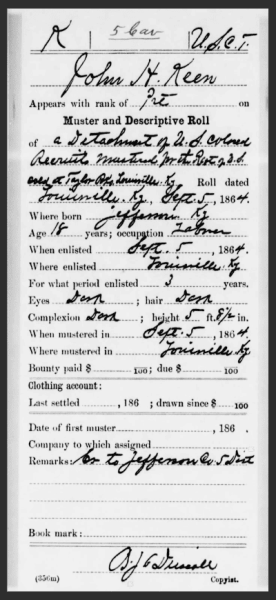 K | 5 Cav | U.S.C.T.
John H. Keen
Appears with rank of Pvt on
Muster and Descriptive Roll
of a Detachment of U.S. colored
Recruits Mustered
at Taylor Louisville, Ky Roll dated
Louisville, Ky., Sept. 5, 1864.
Where born Jefferson Ky
Age 18 years; occupation Laborer
When enlisted Sept. 5, 1864.
Where enlisted Louisville Ky
For what period enlisted 3 years.
Eyes Dark ; hair Dark
Complexion Dark ; height 5 ft. 8½ in.
When mustered in Sept. 5, 1864.
Where mustered in Louisville Ky
Bounty paid $ 100; due $ 100
Clothing account:
Last settled , 186 ; drawn since $ 100
Date of first muster , 186 .
Company to which assigned
Remarks: Cr to Jefferson Co 5 Dist
Book mark:
(356m) Copyist.